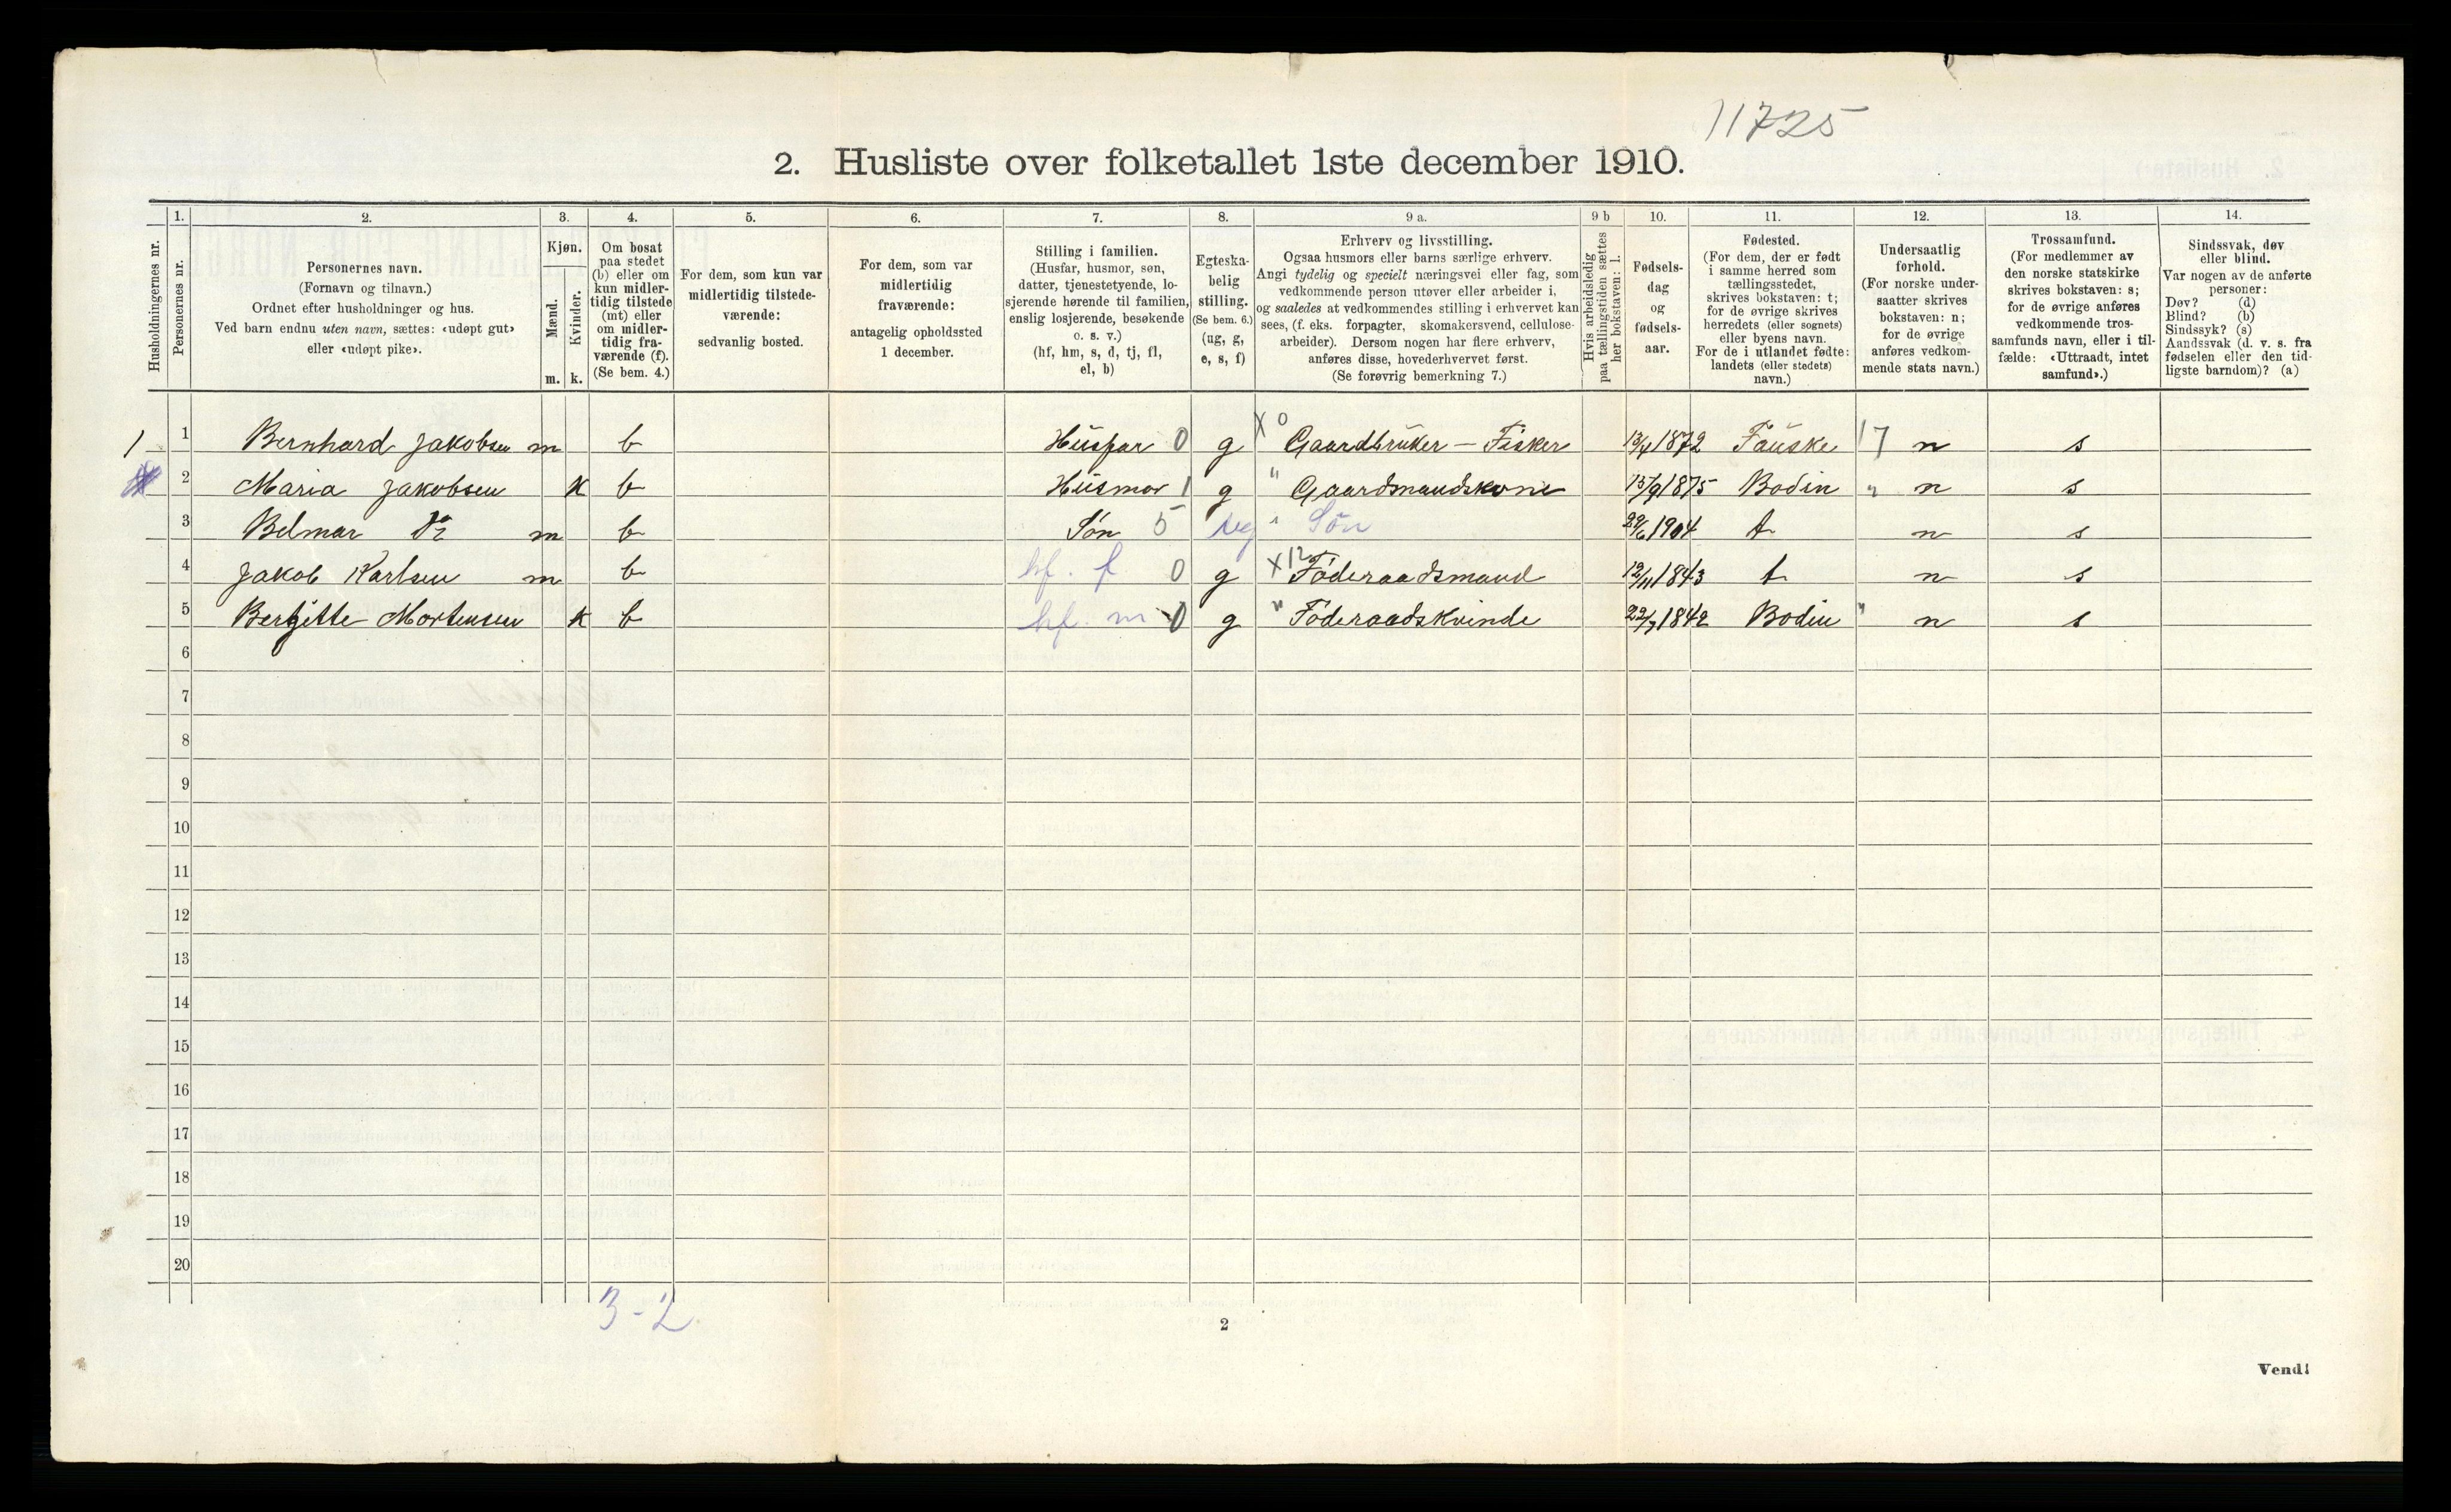 11725
2. Husliste over folketallet 1ste december 1910.
Husholdningernes nr.
1.
Personernes nr.
2.
Personernes navn.
(Fornavn og tilnavn.)
Ordnet efter husholdninger og hus.
Ved barn endnu uten navn, sættes: «udøpt gut»
eller «udøpt pike».
3.
Kjøn.
Mænd.
Kvinder.
m. k.
4.
Om bosat
paa stedet
(b) eller om
kun midler-
tidig tilstede
(mt) eller
om midler-
tidig fra-
værende (f).
(Se bem. 4.)
5.
For dem, som kun var
midlertidig tilstede-
værende:
sedvanlig bosted.
6.
For dem, som var
midlertidig
fraværende:
antagelig opholdssted
1 december.
7.
Stilling i familien.
(Husfar, husmor, søn,
datter, tjenestetyende, lo-
sjerende hørende til familien,
enslig losjerende, besøkende
o. s. v.)
(hf, hm, s, d, tj, fl,
el, b)
8.
Egteska-
belig
stilling.
(Se bem. 6.)
(ug, g,
e, s, f)
9 a.
Erhverv og livsstilling.
Ogsaa husmors eller barns særlige erhverv.
Angi tydelig og specielt næringsvei eller fag, som
vedkommende person utøver eller arbeider i,
og saaledes at vedkommendes stilling i erhvervet kan
sees, (f. eks. forpagter, skomakersvend, cellulose-
arbeider). Dersom nogen har flere erhverv,
anføres disse, hovederhvervet først.
(Se forøvrig bemerkning 7.)
9 b
Hvis arbeidsledig
paa tællingstiden sættes
her bokstaven: l.
10.
Fødsels-
dag
og
fødsels-
aar.
11.
Fødested.
(For dem, der er født
i samme herred som
tællingsstedet,
skrives bokstaven: t;
for de øvrige skrives
herredets (eller sognets)
eller byens navn.
For de i utlandet fødte:
landets (eller stedets)
navn.)
12.
Undersaatlig
forhold.
(For norske under-
saatter skrives
bokstaven: n;
for de øvrige
anføres vedkom-
mende stats navn.)
13.
Trossamfund.
(For medlemmer av
den norske statskirke
skrives bokstaven: s;
for de øvrige anføres
vedkommende tros-
samfunds navn, eller i til-
fælde: «Uttraadt, intet
samfund».)
14.
Sindssvak, døv
eller blind.
Var nogen av de anførte
personer:
Døv? (d)
Blind? (b)
Sindssyk? (s)
Aandssvak (d. v. s. fra
fødselen eller den tid-
ligste barndom)? (a)
1 1 Bernhard Jakobsen m b Husfar 0 g X0 Gaardbruker - Fisker 13/4 1872 Fauske 17 n s
2 Maria Jakobsen K b Husmor 1 g " Gaardmandskone 15/9 1875 Bodin " n s
3 Belmar Do m b Søn 5 ug " Søn 29/6 1904 t n s
4 Jakob Karlsen m b hf. f 0 g X12 Føderaadsmand 12/11 1843 t n s
5 Bergitte Mortensen K b hf. m 0 g " Føderaadskvinde 22/7 1842 Bodin " n s
6
7
8
9
10
11
12
13
14
15
16
17
18
19
20
3 - 2
2
Vend!